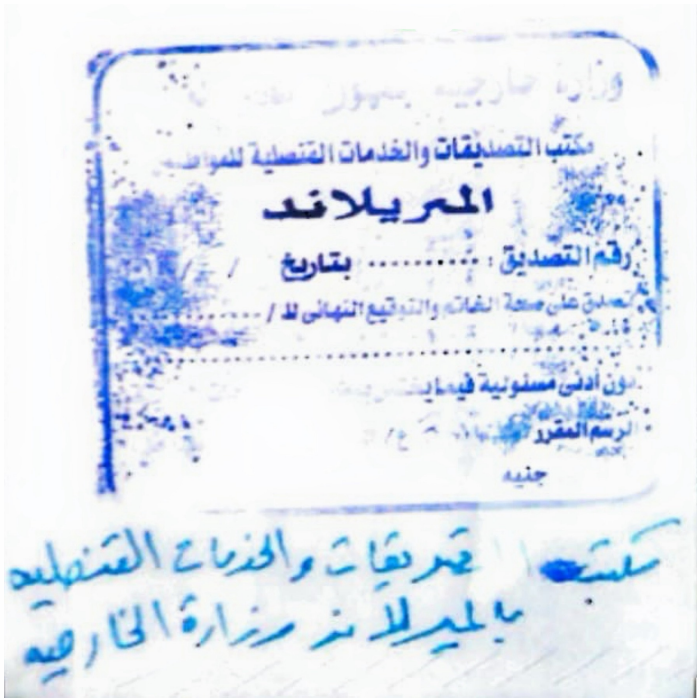 وزارة خارجية
مكتب التصديقات والخدمات القنصلية
الميريلاند
رقم التصديق : .......... بتاريخ / /
تصدق على صحة الخاتم والتوقيع النهائى للـ / ............
دون أدنى مسئولية فيما
الرسم المقرر
جنيه
مكتب التصديقات والخدمات القنصليه
بالميرلاند وزارة الخارجيه